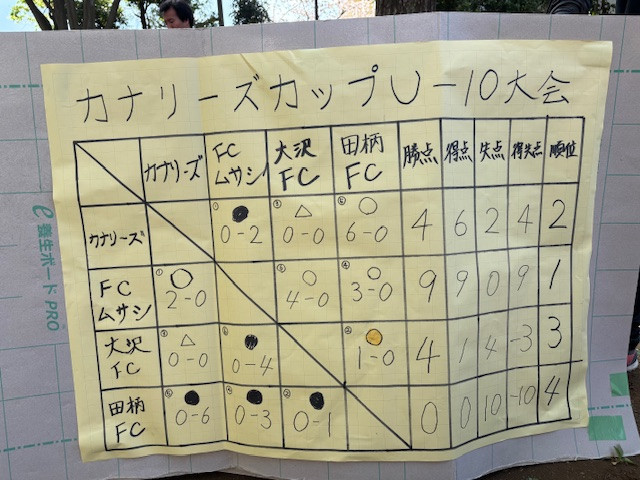 カナリーズカップU-10大会
カナリーズ FCムサシ 大沢FC 田柄FC 勝点 得点 失点 得失点 順位
カナリーズ ① ● 0-2 ③ △ 0-0 ⑥ ○ 6-0 4 6 2 4 2
FCムサシ ① ○ 2-0 ⑤ ○ 4-0 ④ ○ 3-0 9 9 0 9 1
大沢FC ③ △ 0-0 ⑤ ● 0-4 ② ○ 1-0 4 1 4 -3 3
田柄FC ⑥ ● 0-6 ④ ● 0-3 ② ● 0-1 0 0 10 -10 4
養生ボード PRO